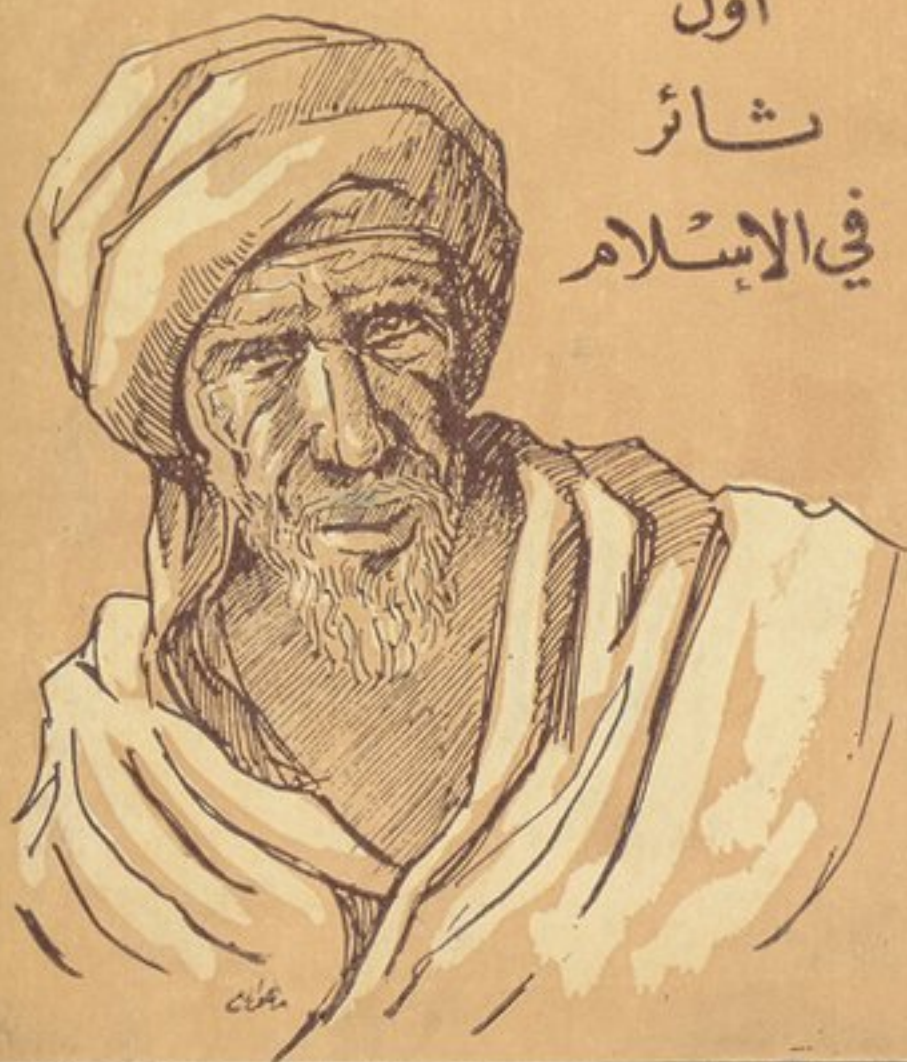 أول
ثائر
في الإسلام